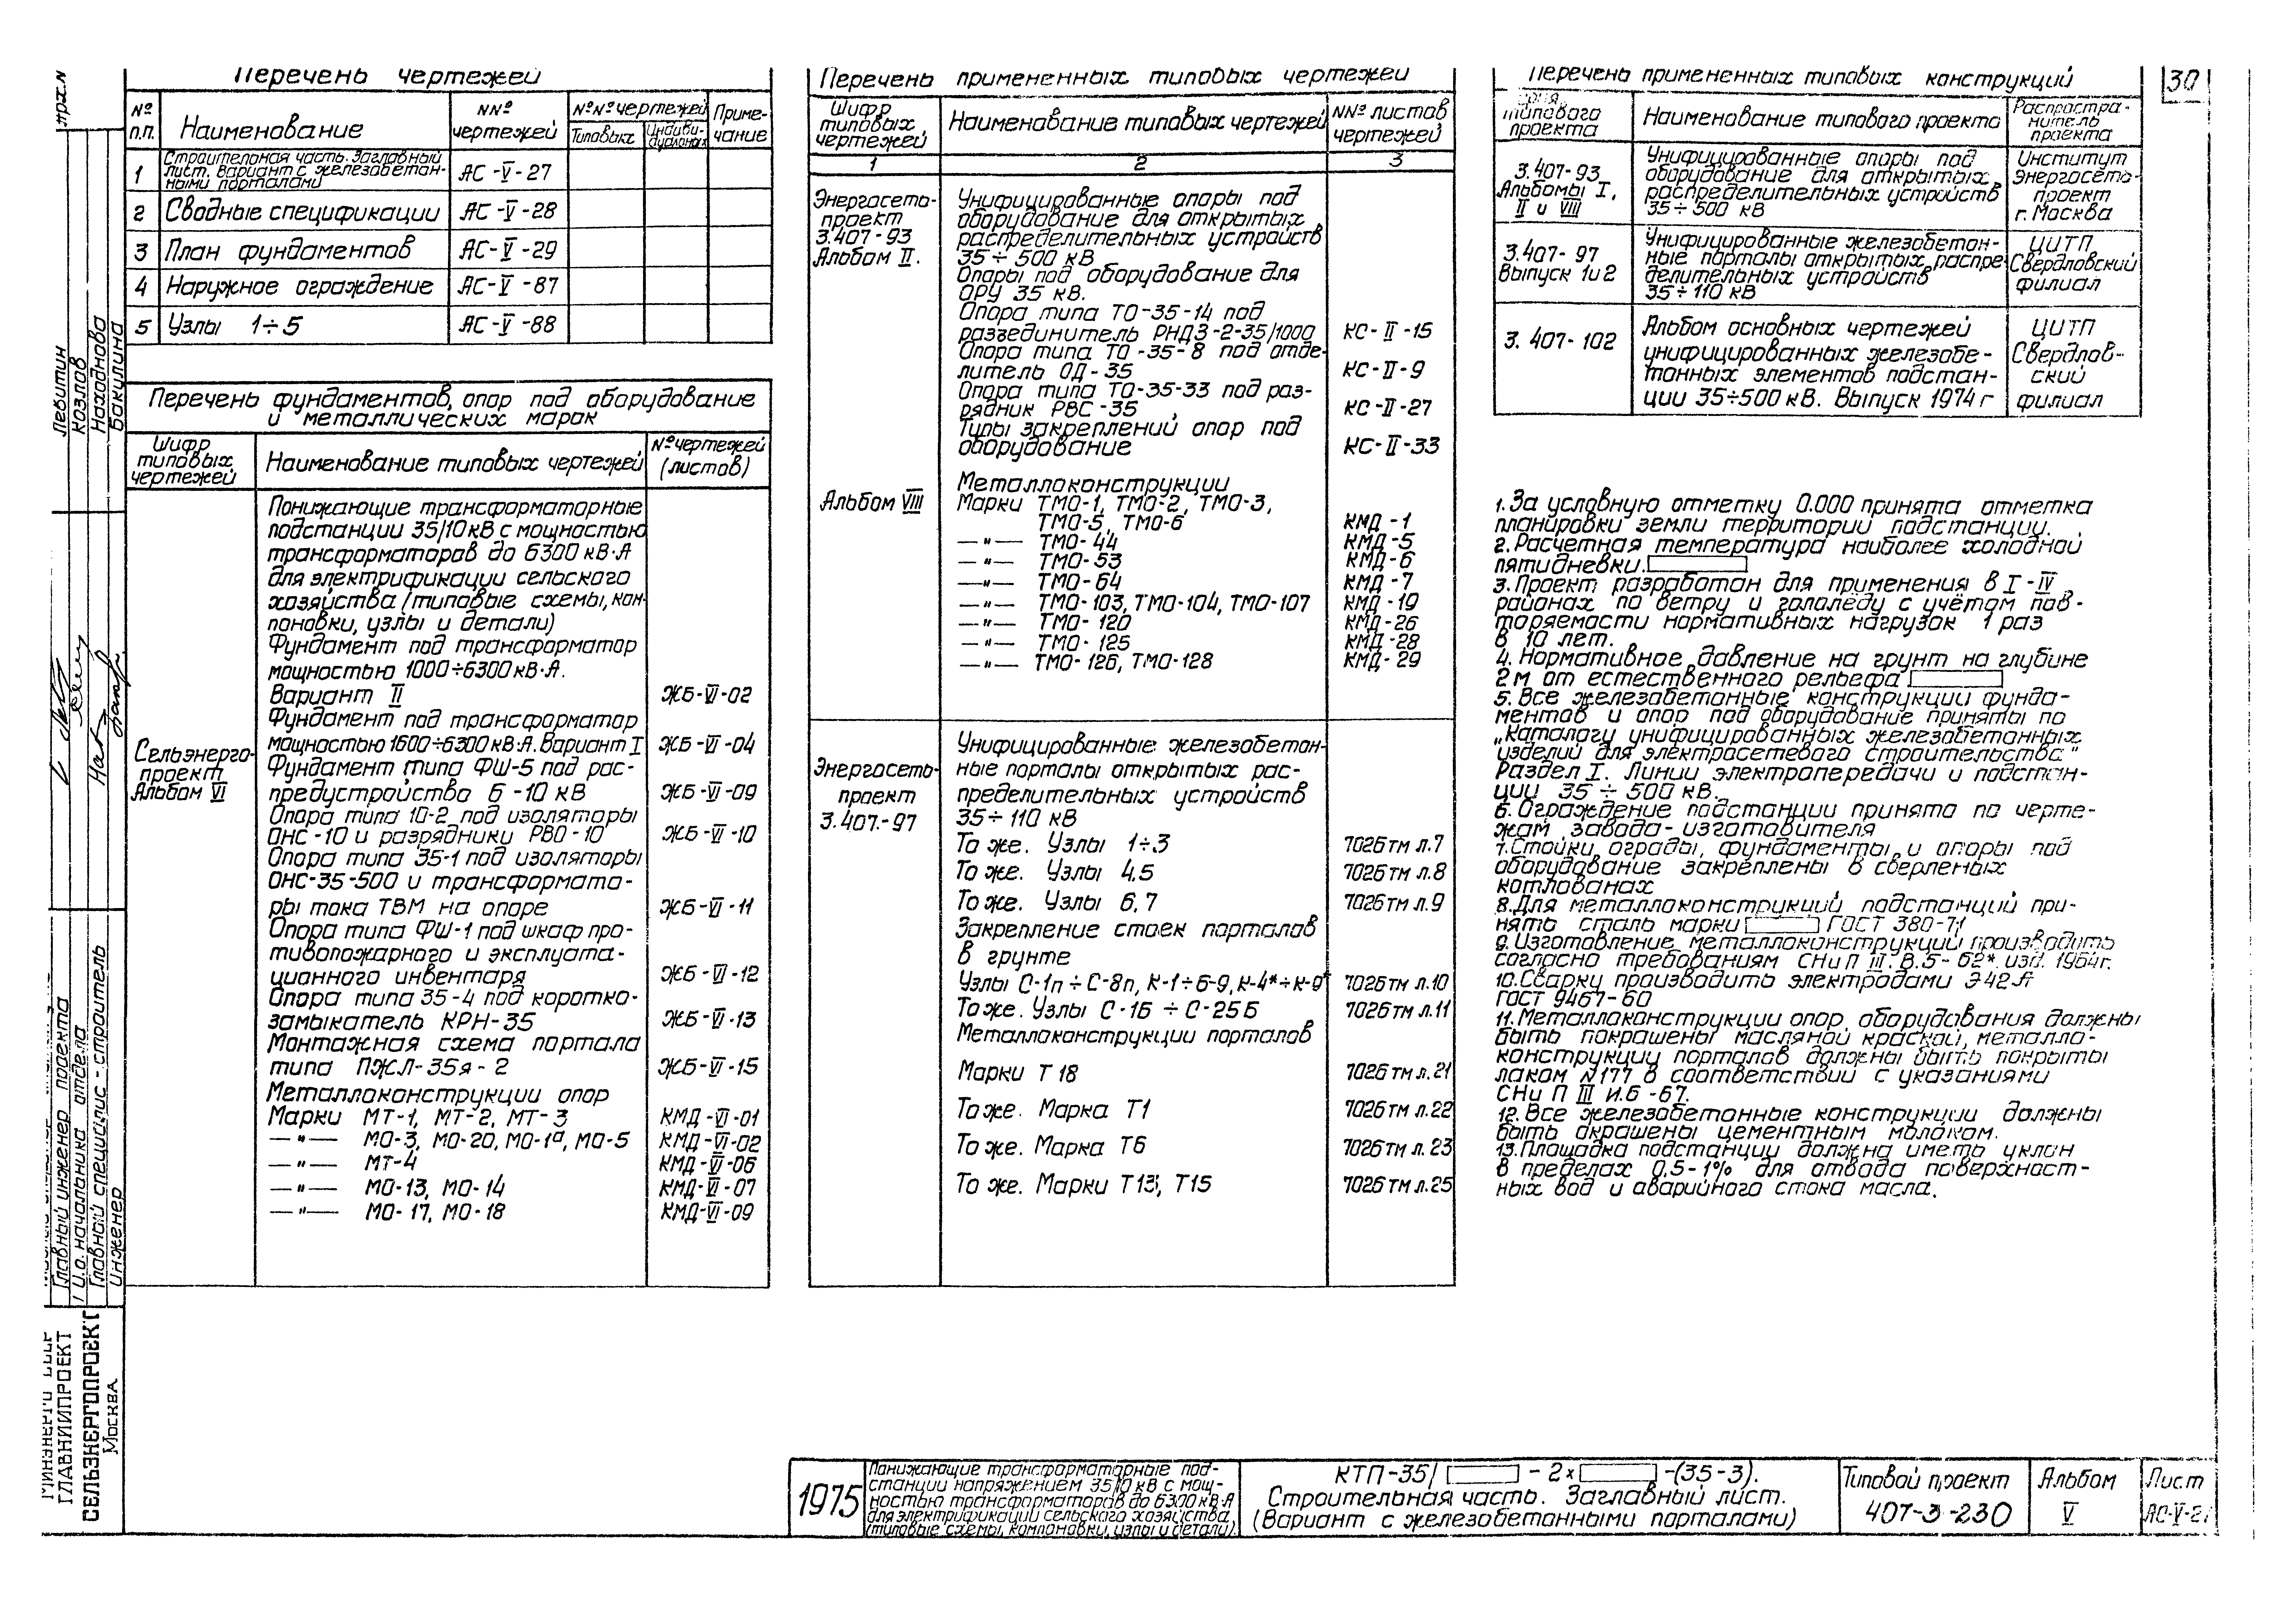 Перечень чертежей
№ п.п. Наименование NN° чертежей №№ чертежей Приме-чание
Типовых Индиви-дуальных
1 Строительная часть. Заглавный лист. Вариант с железобетон-ными порталами АС-V-27
2 Сводные спецификации АС-V-28
3 План фундаментов АС-V-29
4 Наружное ограждение АС-V-87
5 Узлы 1÷5 АС-V-88
Перечень фундаментов, опор под оборудование
и металлических марок
Шифр типовых чертежей Наименование типовых чертежей № чертежей (листов)
Сельэнерго-
проект
Альбом VI
Понижающие трансформаторные
подстанции 35/10кВ с мощностью
трансформаторов до 6300 кВ·А
для электрификации сельского
хозяйства (типовые схемы, ком-
поновки, узлы и детали)
Фундамент под трансформатор
мощностью 1000÷6300кВ·А.
Вариант II ЖБ-VI-02
Фундамент под трансформатор
мощностью 1600÷6300кВ·А. Вариант I ЖБ-VI-04
Фундамент типа ФШ-5 под рас-
предустройства 6-10 кВ ЖБ-VI-09
Опора типа 10-2 под изоляторы
ОНС-10 и разрядники РВО-10 ЖБ-VI-10
Опора типа 35-1 под изоляторы
ОНС-35-500 и трансформато-
ры тока ТВМ на опоре ЖБ-VI-11
Опора типа ФШ-1 под шкаф про-
тивопожарного и эксплуата-
ционного инвентаря ЖБ-VI-12
Опора типа 35-4 под коротко-
замыкатель КРН-35 ЖБ-VI-13
Монтажная схема портала
типа ПЖЛ-35я-2 ЖБ-VI-15
Металлоконструкции опор
Марки МТ-1, МТ-2, МТ-3 КМД-VI-01
—"— МО-3, МО-20, МО-1а, МО-5 КМД-VI-02
—"— МТ-4 КМД-VI-06
—"— МО-13, МО-14 КМД-VI-07
—"— МО-17, МО-18 КМД-VI-09
Перечень примененных типовых чертежей
Шифр типовых чертежей Наименование типовых чертежей NN° листов чертежей
1 2 3
Энергосеть-
проект
3.407-93
Альбом II.
Унифицированные опоры под
оборудование для открытых
распределительных устройств
35÷500 кВ
Опоры под оборудование для
ОРУ 35 кВ.
Опора типа ТО-35-14 под
разъединитель РНДЗ-2-35/1000 КС-II-15
Опора типа ТО-35-8 под отде-
литель ОД-35 КС-II-9
Опора типа ТО-35-33 под раз-
рядник РВС-35 КС-II-27
Типы закреплений опор под
оборудование КС-II-33
Металлоконструкции
Альбом VIII Марки ТМО-1, ТМО-2, ТМО-3,
ТМО-5, ТМО-6 КМД-1
—"— ТМО-44 КМД-5
—"— ТМО-53 КМД-6
—"— ТМО-64 КМД-7
—"— ТМО-103, ТМО-104, ТМО-107 КМД-19
—"— ТМО-120 КМД-26
—"— ТМО-125 КМД-28
—"— ТМО-126, ТМО-128 КМД-29
Энергосеть-
проект
3.407.-97
Унифицированные железобетон-
ные порталы открытых рас-
пределительных устройств
35÷110 кВ
То же. Узлы 1÷3 7026тм л.7
То же. Узлы 4,5 7026тм л.8
То же. Узлы 6,7 7026тм л.9
Закрепление стоек порталов
в грунте
Узлы С-1п÷С-8п, К-1÷6-9, К-4*÷К-9* 7026тм л.10
То же. Узлы С-1Б÷С-25Б 7026тм л.11
Металлоконструкции порталов
Марки Т18 7026тм л.21
То же. Марка Т1 7026тм л.22
То же. Марка Т6 7026тм л.23
То же. Марки Т13, Т15 7026тм л.25
Перечень примененных типовых конструкций
30
типового проекта Наименование типового проекта Распростра-нитель проекта
3.407-93
Альбомы I,
II и VIII
Унифицированные опоры под
оборудование для открытых
распределительных устройств
35÷500 кВ
Институт
Энергосеть-
проект
г. Москва
3.407-97
Выпуск 1и2
Унифицированные железобетон-
ные порталы открытых распре-
делительных устройств
35÷110 кВ
ЦИТП
Свердловский
филиал
3.407-102
Альбом основных чертежей
унифицированных железобе-
тонных элементов подстан-
ции 35÷500 кВ. Выпуск 1974г
ЦИТП
Свердлов-
ский
филиал
1. За условную отметку 0.000 принята отметка
планировки земли территории подстанции.
2. Расчетная температура наиболее холодной
пятидневки.
3. Проект разработан для применения в I-IV
районах по ветру и гололёду с учётом пов-
торяемости нормативных нагрузок 1 раз
в 10 лет.
4. Нормативное давление на грунт на глубине
2м от естественного рельефа
5. Все железобетонные конструкции фунда-
ментов и опор под оборудование приняты по
„Каталогу унифицированных железобетонных
изделий для электросетевого строительства"
Раздел I. Линии электропередачи и подстан-
ции 35÷500 кВ.
6. Ограждение подстанции принята по черте-
жам завода-изготовителя
7. Стойки ограды, фундаменты и опоры под
оборудование закреплены в сверленых
котлованах
8. Для металлоконструкций подстанций при-
нять сталь марки ГОСТ 380-71
9. Изготовление металлоконструкций производить
согласно требованиям СНиП III. В.5-62*. изд. 1964г.
10. Сварку производить электродами Э42А
ГОСТ 9467-60
11. Металлоконструкции опор оборудования должны
быть покрашены масляной краской, металло-
конструкции порталов должны быть покрыты
лаком N177 в соответствии с указаниями
СНиП III И.6-67.
12. Все железобетонные конструкции должны
быть окрашены цементным молоком.
13. Площадка подстанции должна иметь уклон
в пределах 0,5-1% для отвода поверхност-
ных вод и аварийного стока масла.
Левитин
Козлов
Находнова
Бакулина
Главный инженер проекта
И.о. начальника отдела
Главный специалис-строитель
Инженер
ГЛАВНИИПРОЕКТ
СЕЛЬЭНЕРГОПРОЕКТ
Москва
1975
Понижающие трансформаторные под-
станции напряжением 35/10 кВ с мощ-
ностью трансформаторов до 6300 кВ·А
для электрификации сельского хозяйства
(типовые схемы, компоновки, узлы и детали)
КТП-35/ -2х -(35-3).
Строительная часть. Заглавный лист.
(Вариант с железобетонными порталами)
Типовой проект
407-3-230
Альбом
V
Лист
АС-V-27